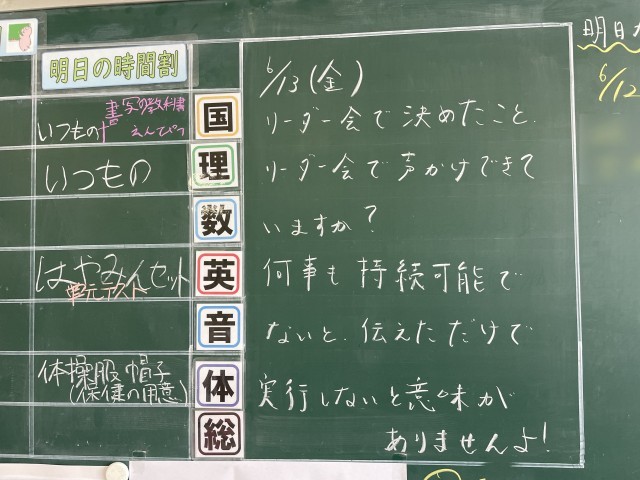 明日の時間割
書写の教科書
いつもの+ えんぴつ
国
いつもの
理
数
はやみんセット
単元テスト
英
音
体操服 帽子
(保健の用意)
体
総
6/13(金)
リーダー会で決めたこと、
リーダー会で声かけできて
いますか?
何事も持続可能で
ないと、伝えただけで
実行しないと意味が
ありませんよ!
明日
6/12